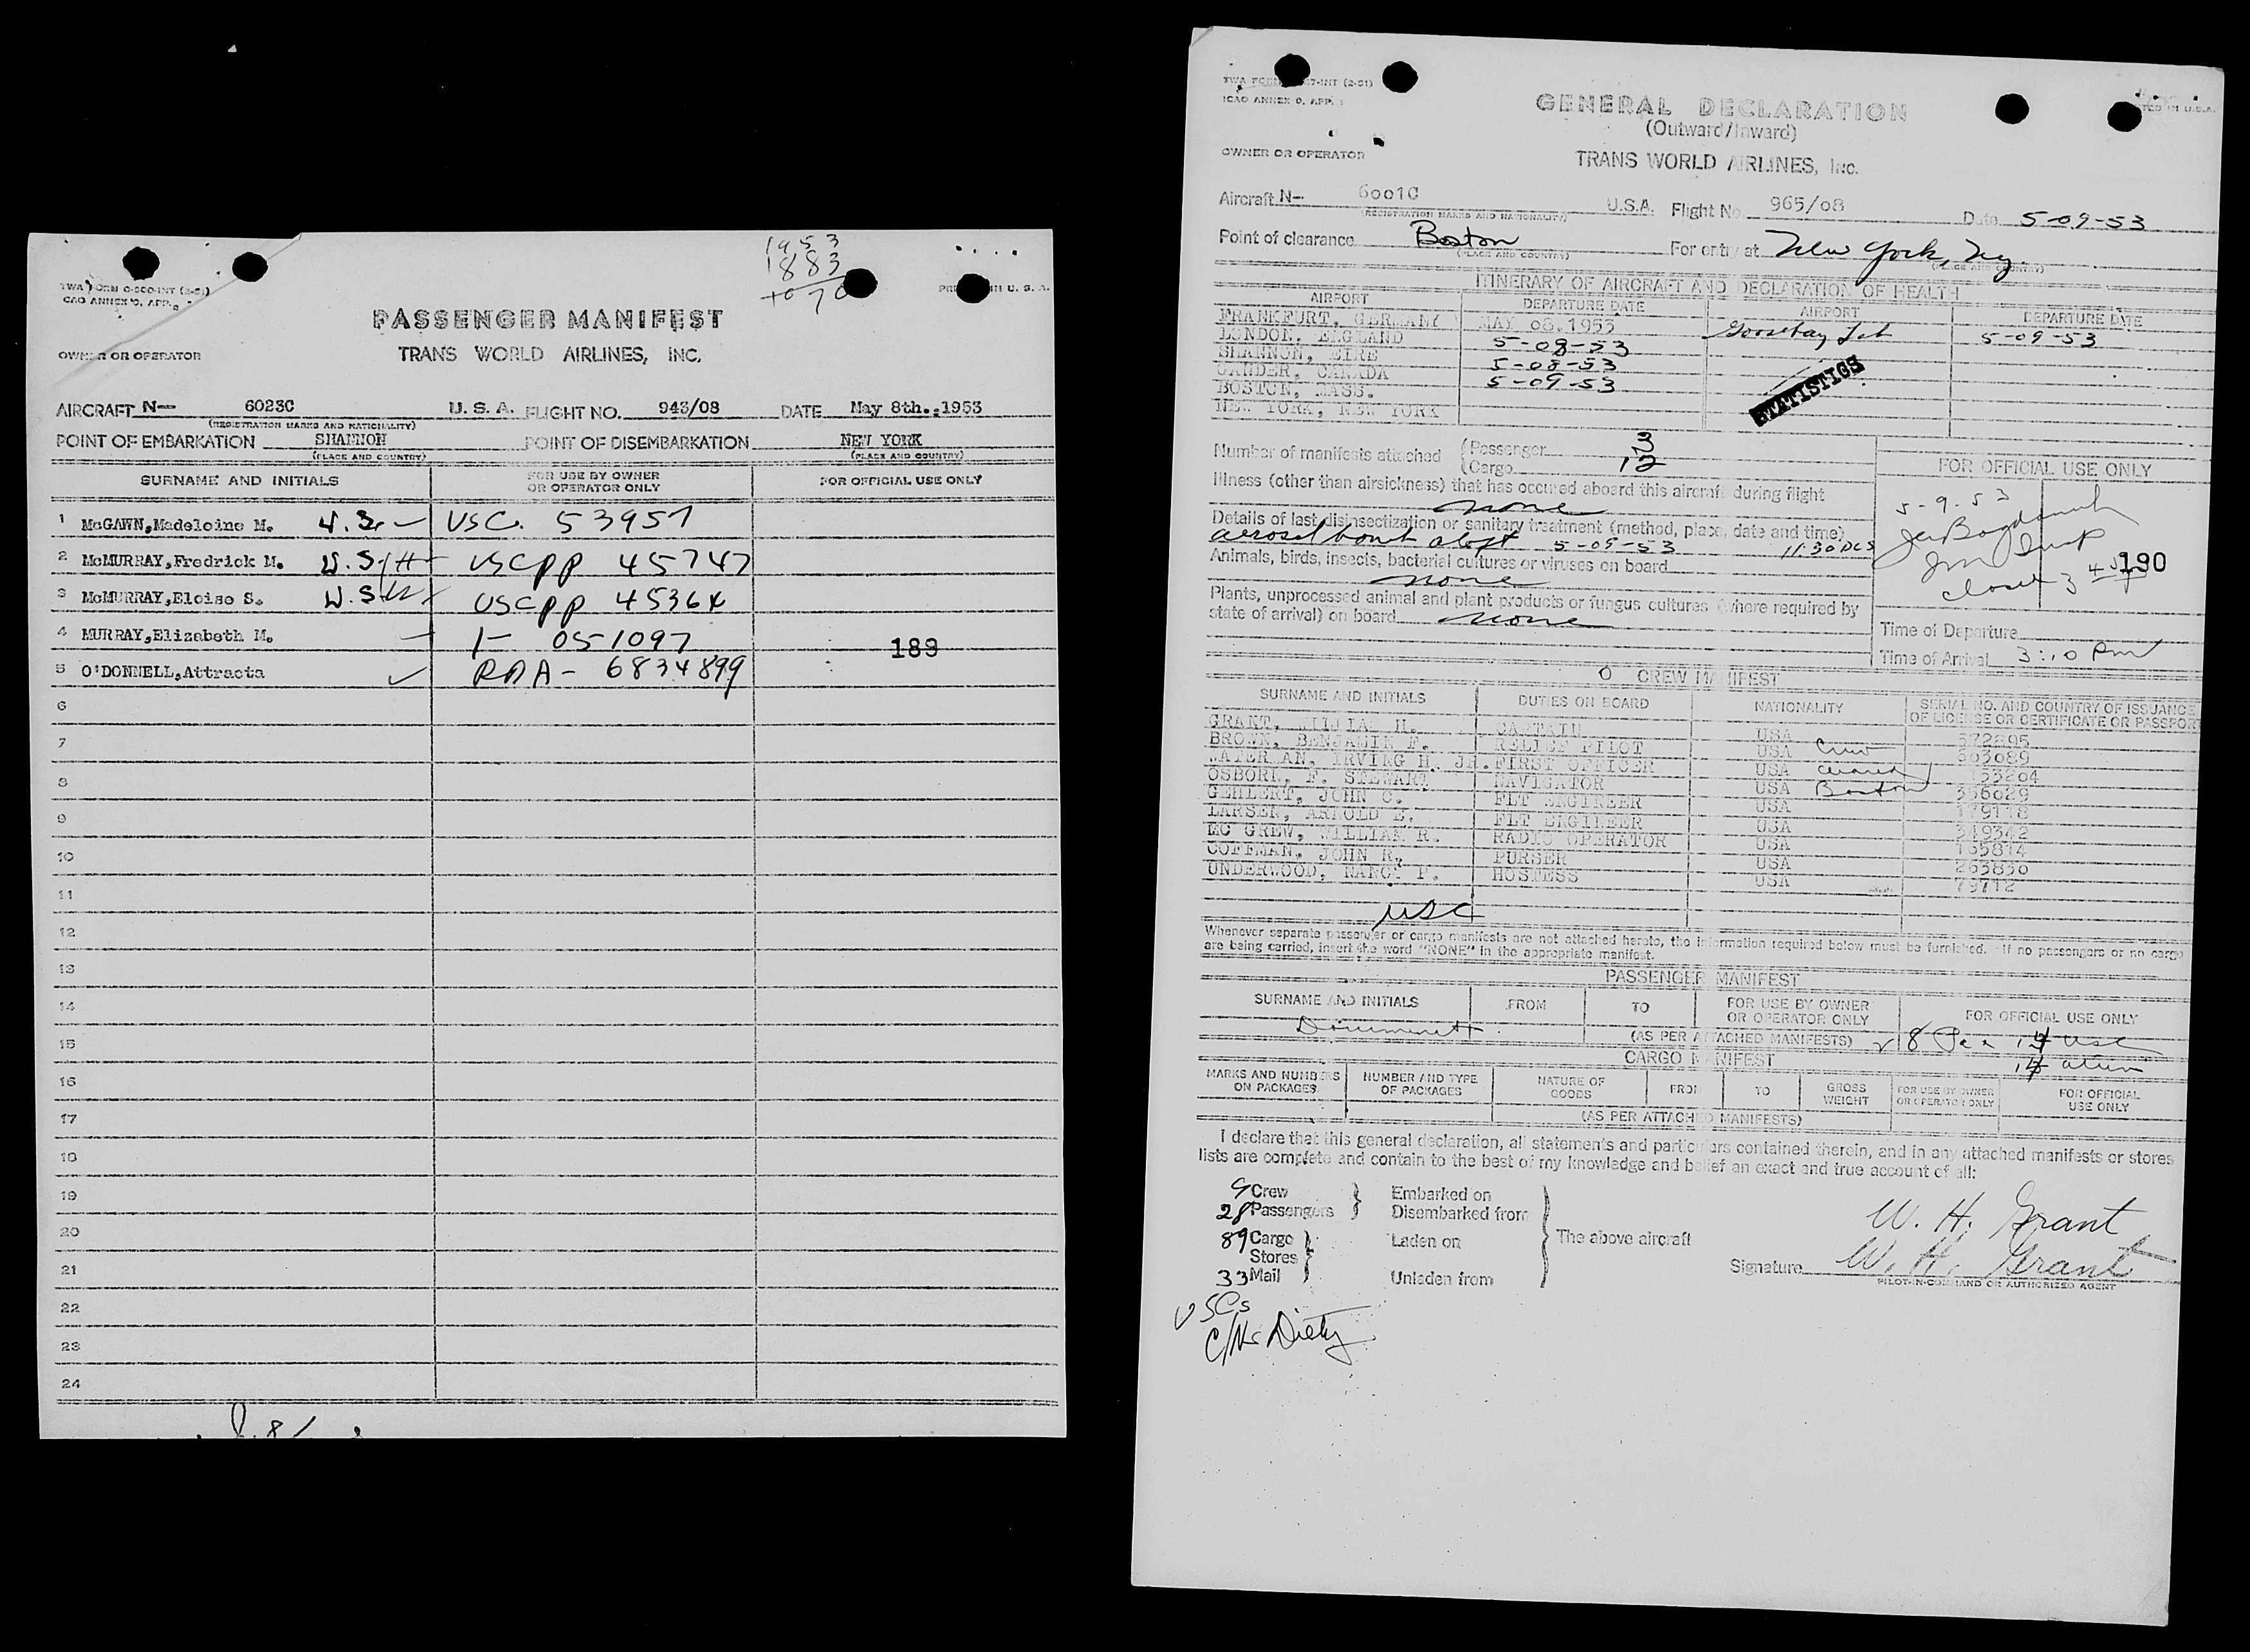 1953
1883
70
TWA FORM O-300-INT (2-51)
CAO ANNEX 9, APP.
IN U. S. A.
PASSENGER MANIFEST
OWNER OR OPERATOR
TRANS WORLD AIRLINES, INC.
AIRCRAFT N— 6023C U. S. A. FLIGHT NO. 943/08 DATE May 8th.,1953
(REGISTRATION MARKS AND NATIONALITY)
POINT OF EMBARKATION SHANNON POINT OF DISEMBARKATION NEW YORK
(PLACE AND COUNTRY) (PLACE AND COUNTRY)
SURNAME AND INITIALS FOR USE BY OWNER OR OPERATOR ONLY FOR OFFICIAL USE ONLY
1 McGAWN,Madeleine M. USC. 53957
2 McMURRAY,Fredrick M. U.S. USCPP 45747
3 McMURRAY,Eloise S. U.S. USCPP 45364
4 MURRAY,Elizabeth M. I- 051097
189
5 O'DONNELL,Attracta RAA- 6834899
6
7
8
9
10
11
12
13
14
15
16
17
18
19
20
21
22
23
24
TWA FORM 37-INT (2-51)
ICAO ANNEX 9, APP. 1
IN U.S.A.
GENERAL DECLARATION
(Outward/Inward)
OWNER OR OPERATOR
TRANS WORLD AIRLINES, Inc.
Aircraft N— 6001C U.S.A. Flight No. 965/08 Date 5-09-53
(REGISTRATION MARKS AND NATIONALITY)
Point of clearance Boston For entry at New York, Ny.
(PLACE AND COUNTRY) (PLACE AND COUNTRY)
ITINERARY OF AIRCRAFT AND DECLARATION OF HEALTH
AIRPORT DEPARTURE DATE AIRPORT DEPARTURE DATE
FRANKFURT, GERMANY MAY 08.1953 Goosebay Lab 5-09-53
LONDON, ENGLAND 5-08-53
SHANNON, EIRE 5-08-53
GANDER, CANADA
BOSTON, MASS. 5-09-53
NEW YORK, NEW YORK
STATISTICS
Number of manifests attached (Passenger 3
(Cargo 12
FOR OFFICIAL USE ONLY
Illness (other than airsickness) that has occured aboard this aircraft during flight
none
5-9-53
Details of last disinsectization or sanitary treatment (method, place, date and time)
aerosol bomb aloft 5-09-53 11:30
Animals, birds, insects, bacterial cultures or viruses on board
none
190
Plants, unprocessed animal and plant products or fungus cultures (where required by
state of arrival) on board none
Time of Departure
Time of Arrival 3:10 PM
CREW MANIFEST
SURNAME AND INITIALS DUTIES ON BOARD NATIONALITY SERIAL NO. AND COUNTRY OF ISSUANCE OF LICENSE OR CERTIFICATE OR PASSPORT
GRANT, WILLIAM H. CAPTAIN USA 572895
BROWN, BENJAMIN F. RELIEF PILOT USA Crew 603089
WATERMAN, IRVING H. JR. FIRST OFFICER USA cleared 153204
OSBORN, F. STEWART NAVIGATOR USA Boston 356029
GEHLERT, JOHN C. FLT ENGINEER USA 179118
LARSEN, ARNOLD E. FLT ENGINEER USA 349342
MC GREW, WILLIAM R. RADIO OPERATOR USA 165814
COFFMAN, JOHN R. PURSER USA 263830
UNDERWOOD, NANCY P. HOSTESS USA 79712
USC
Whenever separate passenger or cargo manifests are not attached hereto, the information required below must be furnished. If no passengers or no cargo
are being carried, insert the word "NONE" in the appropriate manifest.
PASSENGER MANIFEST
SURNAME AND INITIALS FROM TO FOR USE BY OWNER OR OPERATOR ONLY FOR OFFICIAL USE ONLY
(AS PER ATTACHED MANIFESTS)
CARGO MANIFEST
MARKS AND NUMBERS ON PACKAGES NUMBER AND TYPE OF PACKAGES NATURE OF GOODS FROM TO GROSS WEIGHT FOR USE BY OWNER OR OPERATOR ONLY FOR OFFICIAL USE ONLY
(AS PER ATTACHED MANIFESTS)
I declare that this general declaration, all statements and particulars contained therein, and in any attached manifests or stores
lists are complete and contain to the best of my knowledge and belief an exact and true account of all:
9 Crew } Embarked on
28 Passengers Disembarked from
89 Cargo } Laden on The above aircraft
Stores
33 Mail Unladen from
W. H. Grant
Signature W. H. Grant
PILOT-IN-COMMAND OR AUTHORIZED AGENT
USCs